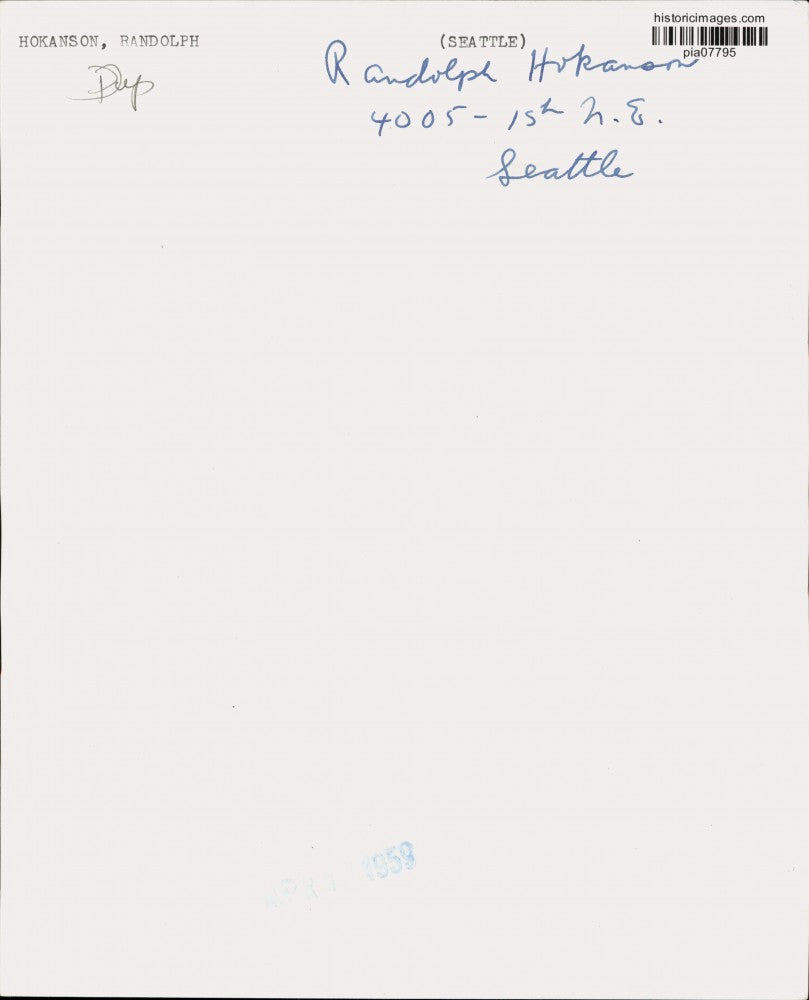 historicimages.com
HOKANSON, RANDOLPH
(SEATTLE)
pia07795
Dup
Randolph Hokanson
4005 - 15th N.E.
Seattle
1959